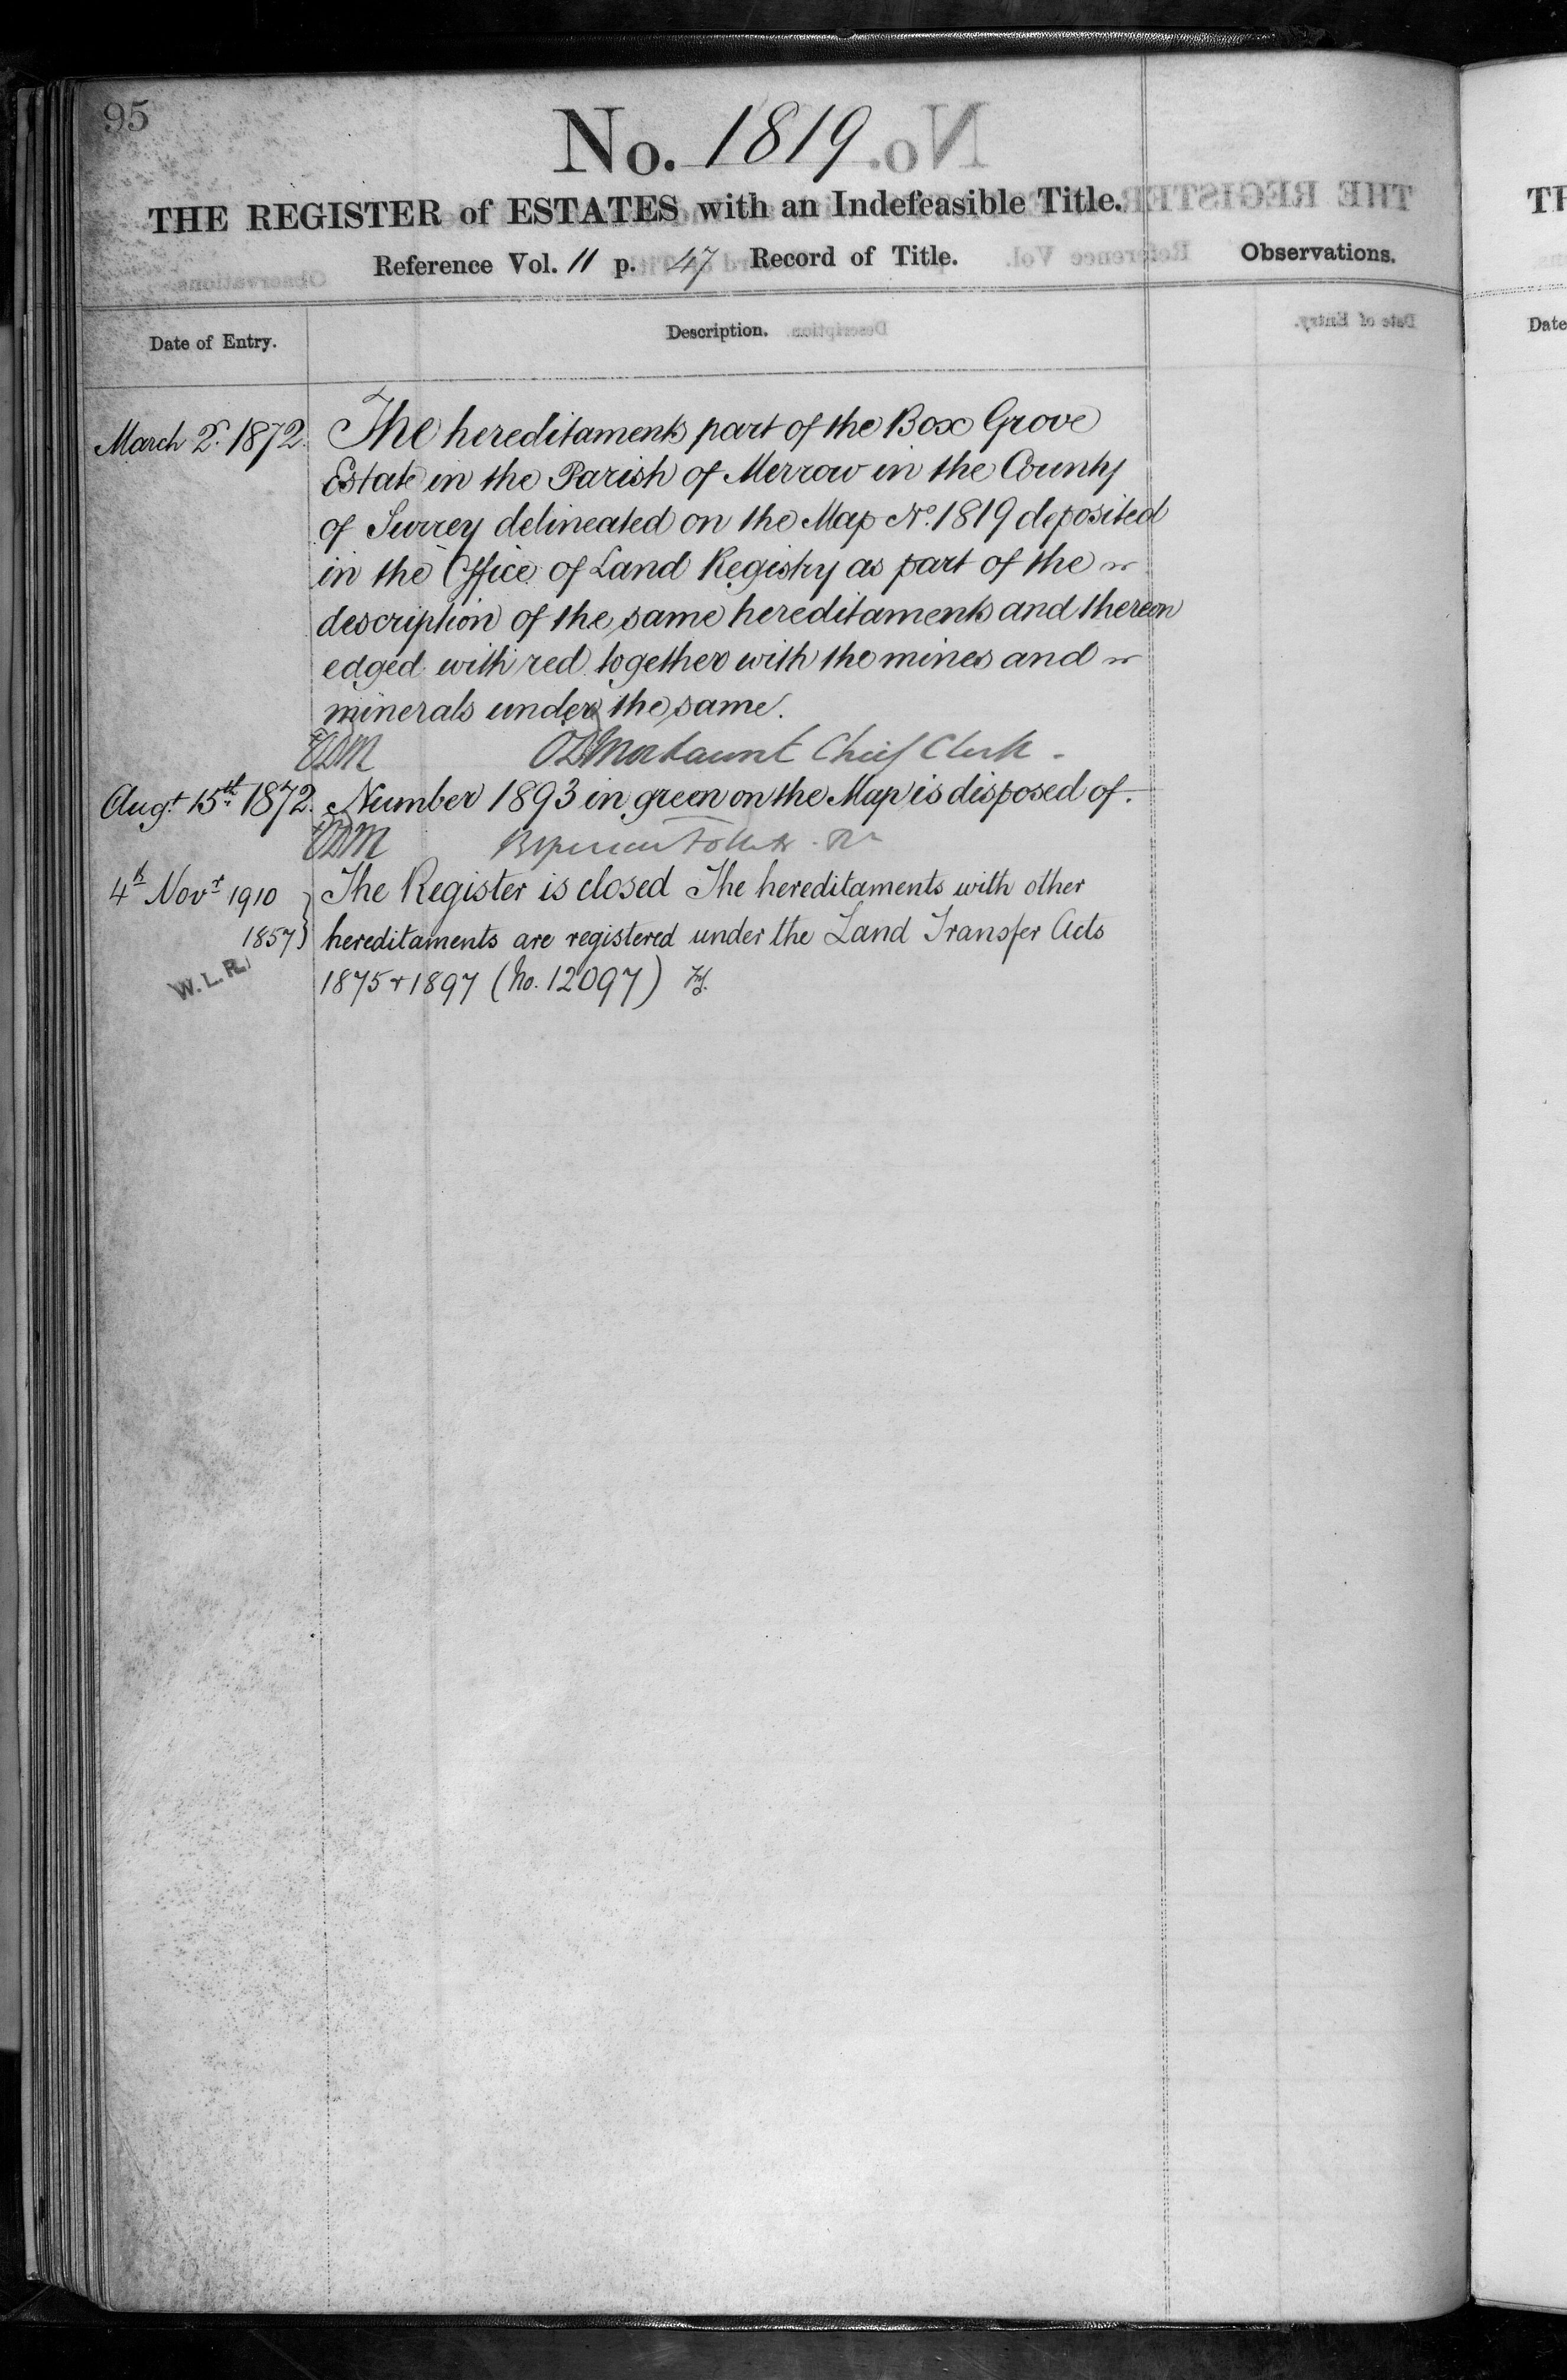 95
No. 1819
THE REGISTER of ESTATES with an Indefeasible Title.
Reference Vol. 11 p. 47 Record of Title.
Observations.
Date of Entry.
Description.
March 2d. 1872. The hereditaments part of the Box Grove
Estate in the Parish of Merrow in the County
of Surrey delineated on the Map No. 1819 deposited
in the Office of Land Registry as part of the
description of the same hereditaments and thereon
edged with red together with the mines and
minerals under the same.
Mordaunt Chief Clerk
Augt. 15th. 1872. Number 1893 in green on the Map is disposed of.
4th Novr 1910 The Register is closed The hereditaments with other
1857 } hereditaments are registered under the Land Transfer Acts
W.L.R. 1875 + 1897 (No. 12097)
TH
Date